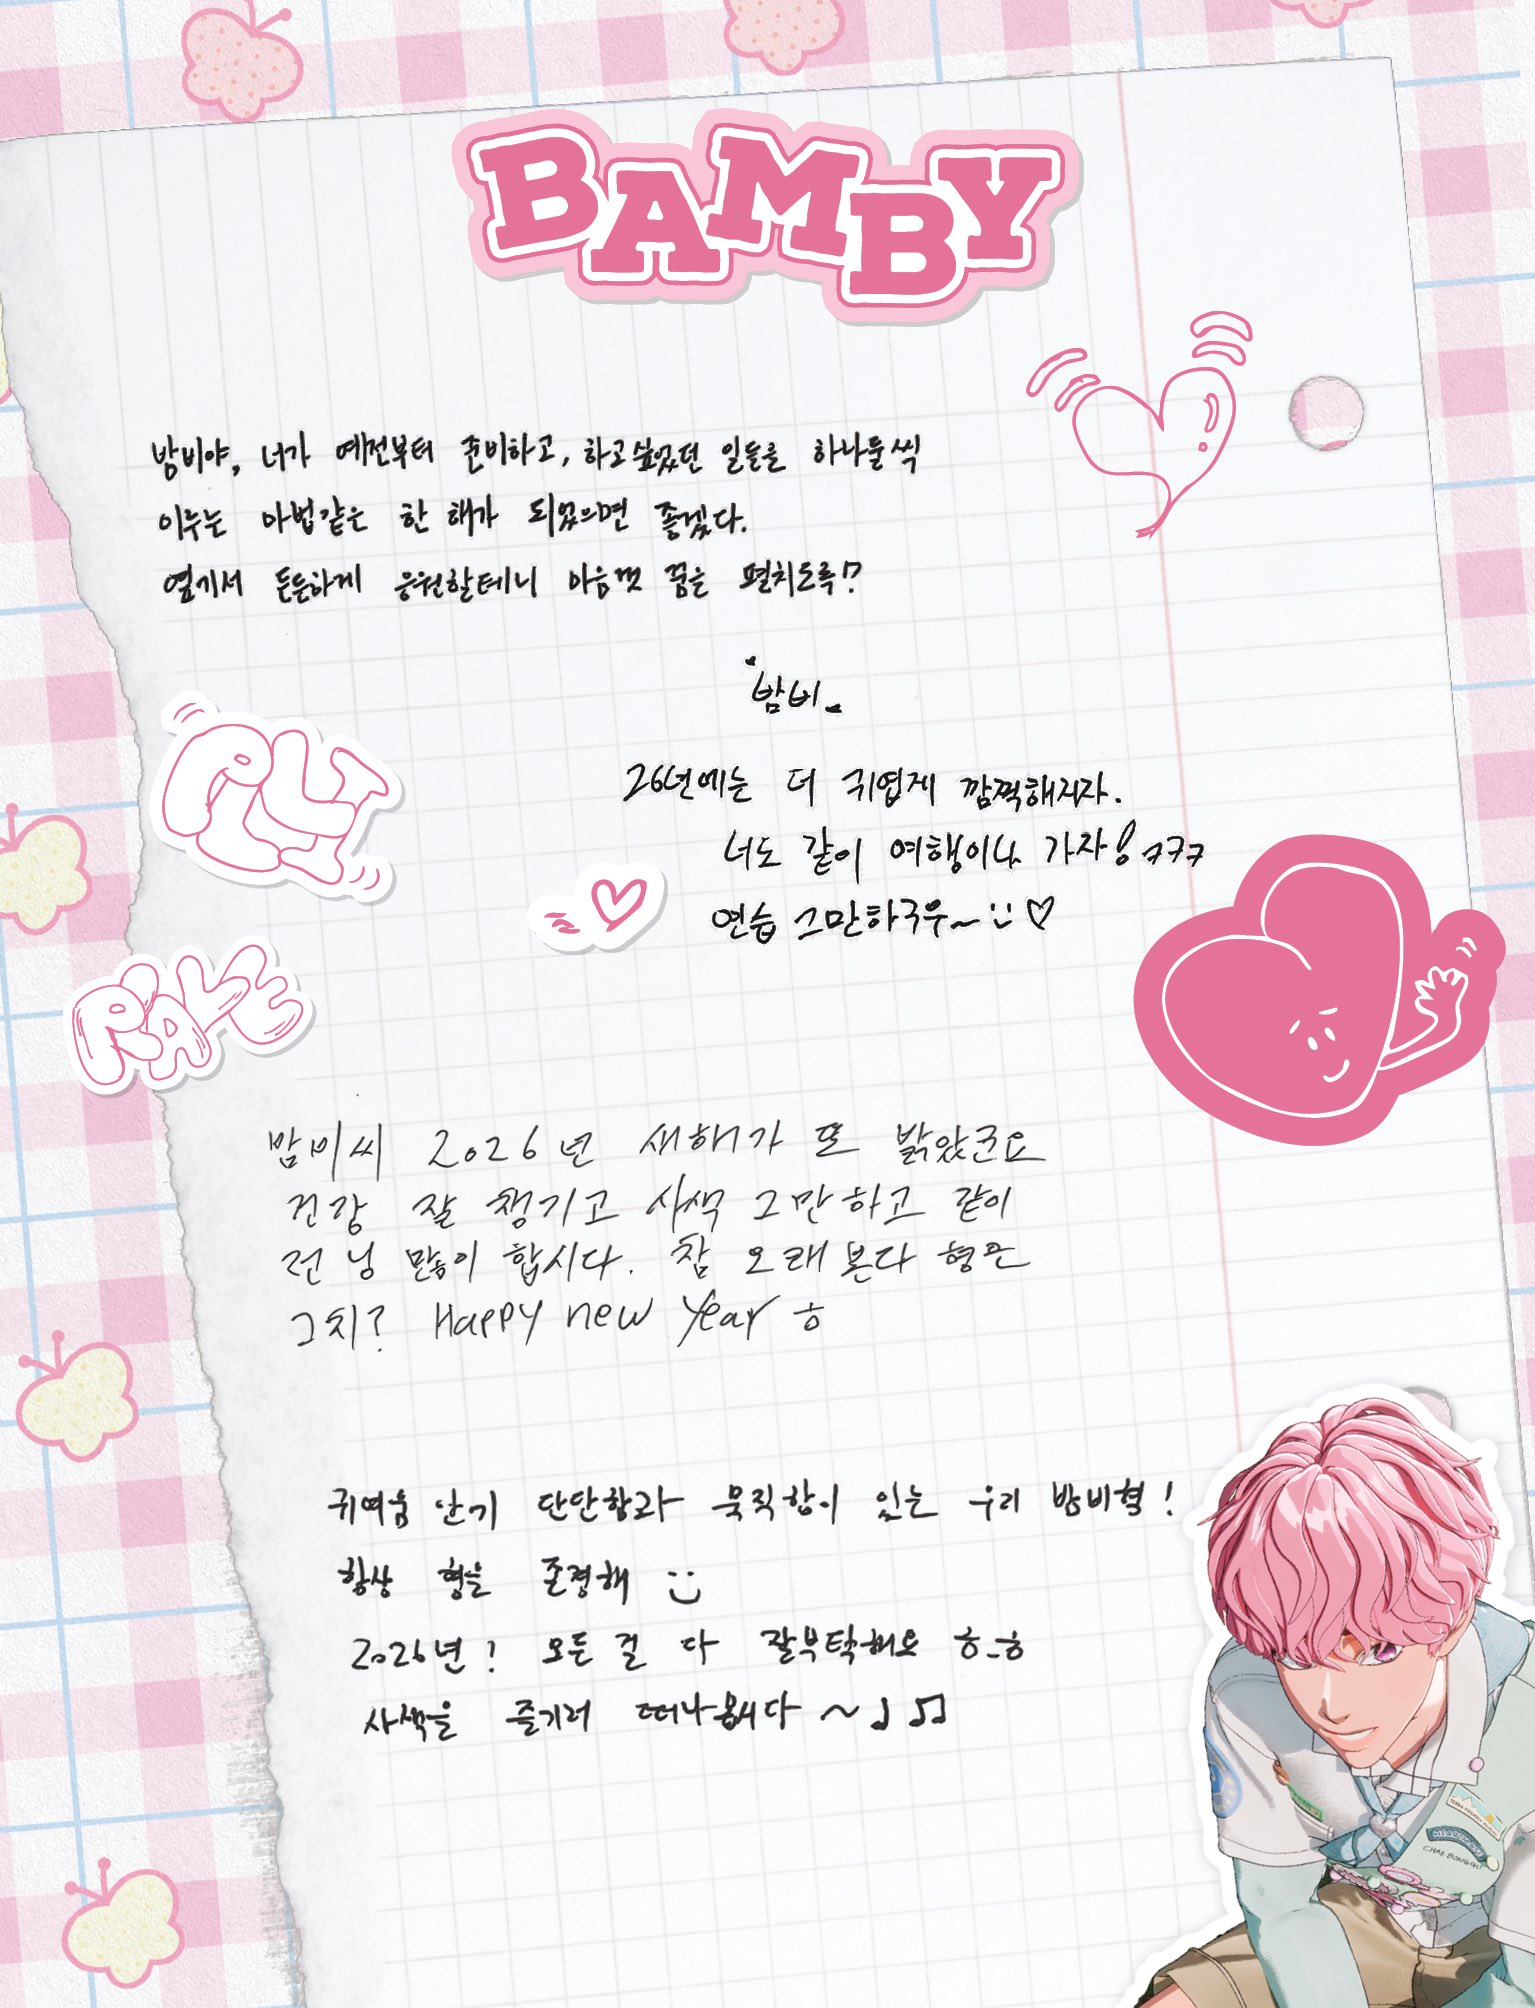 BAMBY
밤비야, 너가 예전부터 준비하고, 하고싶었던 일들을 하나둘씩
이루는 마법같은 한 해가 되었으면 좋겠다.
옆에서 든든하게 응원할테니 마음껏 꿈을 펼치도록!?
밤비
26년에는 더 귀엽게 깜찍해지자.
너도 같이 여행이나 가자! ㅋㅋㅋ
연습 그만하구우~ :) ♡
PLLI
PLAVE
밤비씨 2026년 새해가 또 밝았군요
건강 잘 챙기고 사색 그만하고 같이
전닝 많이 합시다. 참 오래본다 형은
그치? Happy new year ㅎ
귀여움 단기 단단함과 묵직함이 있는 우리 밤비형!
항상 형을 존경해 :)
2026년! 모든 걸 다 잘부탁해요 ㅎ_ㅎ
사색을 즐기러 떠나봅시다 ~♩♫
HEARTMADE
CHAE BONGGU